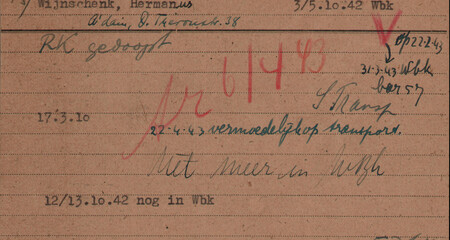 Wijnschenk, Hermanus 3/5.10.42 Wbk
A'dam, D. Theronstr. 38
RK gedoopt
op 22-2-43
31-3-43 Wbk
bar 57
6/4 43
S Transp
17.3.10
22-4-43 vermoedelijk op transport.
Niet meer in Wbk
12/13.10.42 nog in Wbk